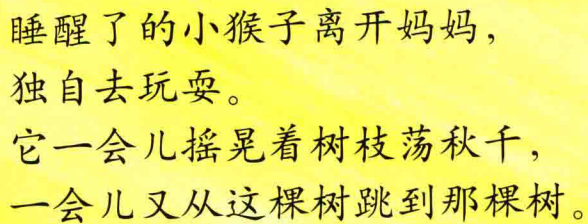 睡醒了的小猴子离开妈妈，
独自去玩耍。
它一会儿摇晃着树枝荡秋千，
一会儿又从这棵树跳到那棵树。